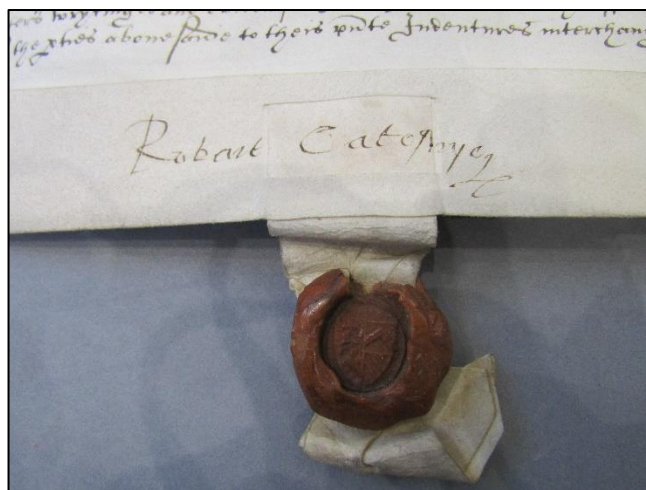 the pties abouesaide to theis pnte Indentures interchang
Robart Catesbye